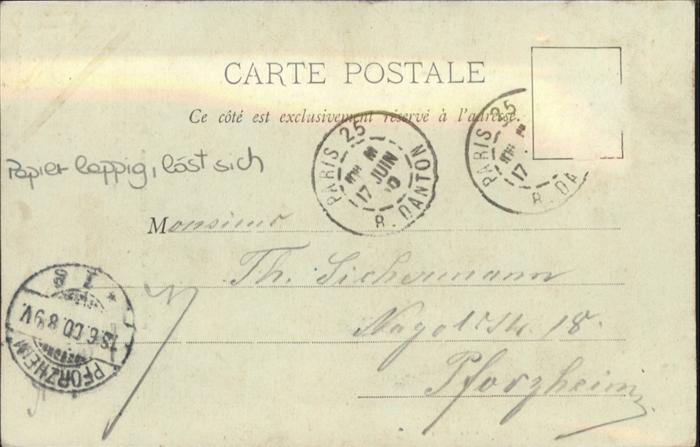 CARTE POSTALE
Ce côté est exclusivement réservé à l'adresse.
PARIS 25
17 JUIN
R. DANTON
PARIS 25
17
R. DA
Papier lappig, löst sich
Monsieur
Th. Sichermann
Nagoldstr. 18.
Pforzheim
PFORZHEIM
18.6.00.8-9V.